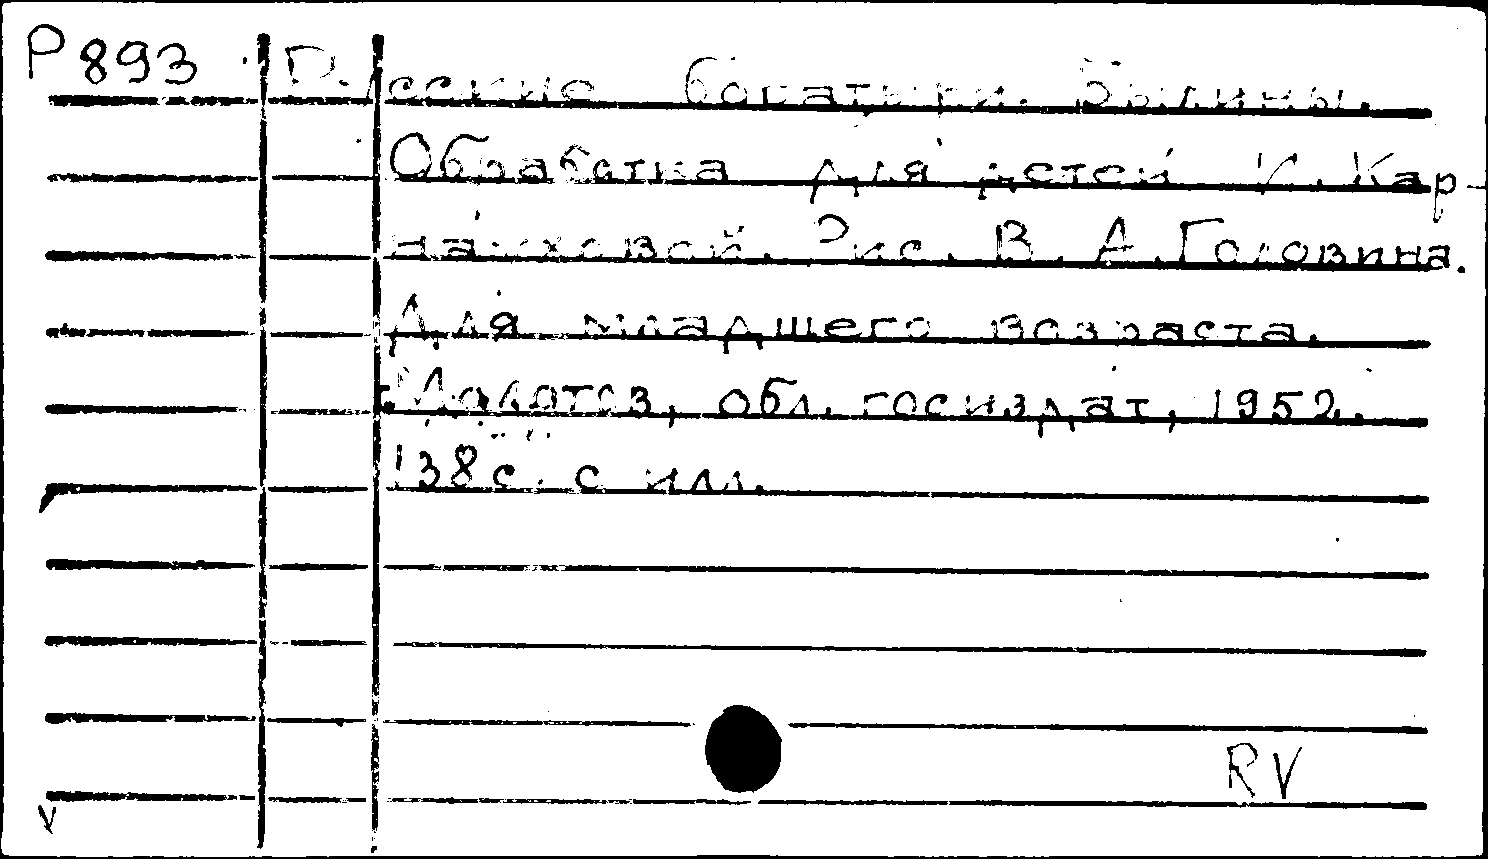 Р893 Русские богатыри. Былины.
Обработка для детей И. Кар-
науховой. Рис. В. А. Головина.
Для младшего возраста.
Молотов, обл. госиздат, 1952.
138с. с илл.
RV
V